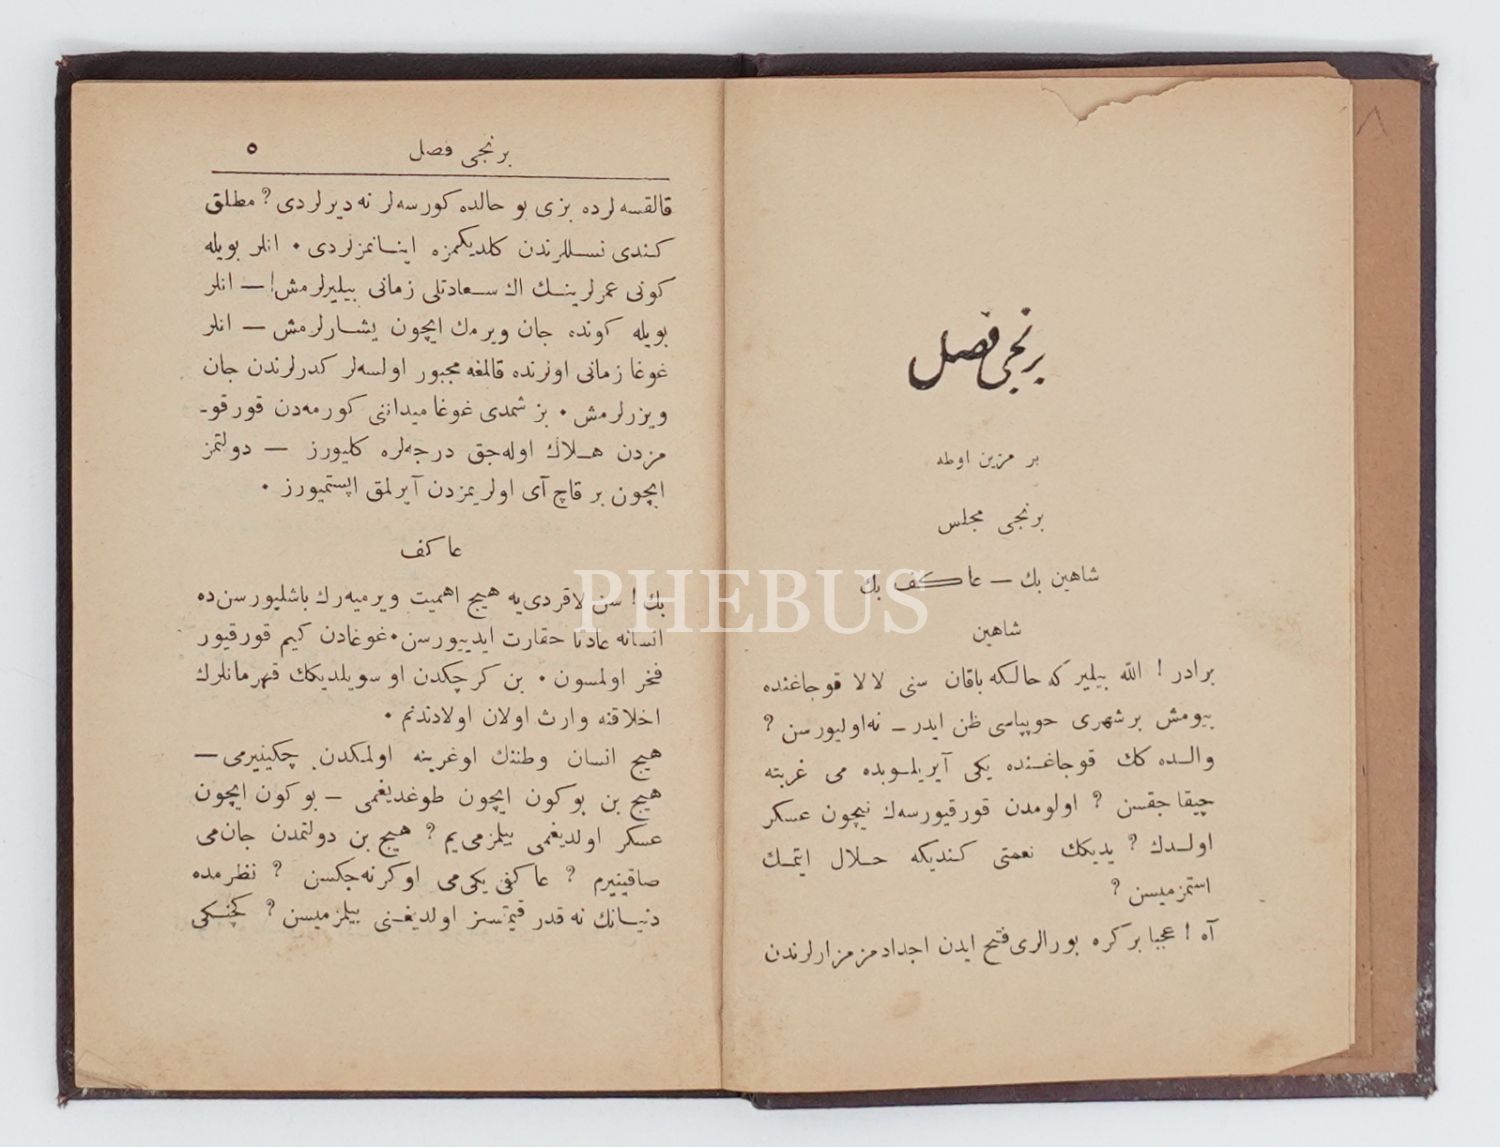 برنجی فصل
بر مزین اوطه
برنجی مجلس
شاهین بك — عاكف بك
شاهین
برادر! الله بیلیر كه حالكه باقان سنی لالا قوجاغنده
بیومش بر شهری حوپپاسی ظن ایدر — نه اولیورسن؟
والده كك قوجاغنده یكی آیریلوبده می غربته
چیقاجقسن؟ اولومدن قورقیورسه ك نیچون عسكر
اولدك؟ یدیكك نعمتی كندیكه حلال ایتمك
استمزمیسن؟
آه! عجبا بر كره بورالری فتح ایدن اجدادمز مزارلرندن
برنجی فصل ٥
قالقسه لرده بزی بو حالده كورسه لر نه دیرلردی؟ مطلق
كندی نسللرندن كلدیكمزه اینانمزلردی. انلر بویله
كونی عمرلرینك اك سعادتلی زمانی بیلیرلرمش! — انلر
بویله كونده جان ویرمك ایچون یشارلرمش — انلر
غوغا زمانی اولرنده قالمغه مجبور اولسه لر كدرلرندن جان
ویررلرمش. بز شمدی غوغا میداننی كورمه دن قورقو-
مزدن هلاك اوله جق درجه لره كلیورز — دولتمز
ایچون بر قاچ آی اولریمزدن آیرلمق ایستمیورز.
عاكف
بك! سن لاقردی یه هیچ اهمیت ویرمیه رك باشلیورسن ده
انسانه عادتا حقارت ایدییورسن. غوغادن كیم قورقیور
فخر اولمسون. بن كرچكدن او سویلدیكك قهرمانلرك
اخلاقنه وارث اولان اولادندنم.
هیچ انسان وطننك اوغرینه اولمكدن چكینیرمی —
هیچ بن بوكون ایچون طوغدیغمی — بوكون ایچون
عسكر اولدیغمی بیلزمی یم؟ هیچ بن دولتمدن جان می
صاقینیرم؟ عاكفی یكی می اوكرنه جكسن؟ نظرمده
دنیانك نه قدر قیمتسز اولدیغنی بیلزمیسن؟ كچنكی
PHEBUS